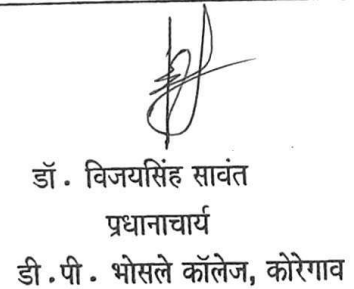 डॉ. विजयसिंह सावंत
प्रधानाचार्य
डी.पी. भोसले कॉलेज, कोरेगाव